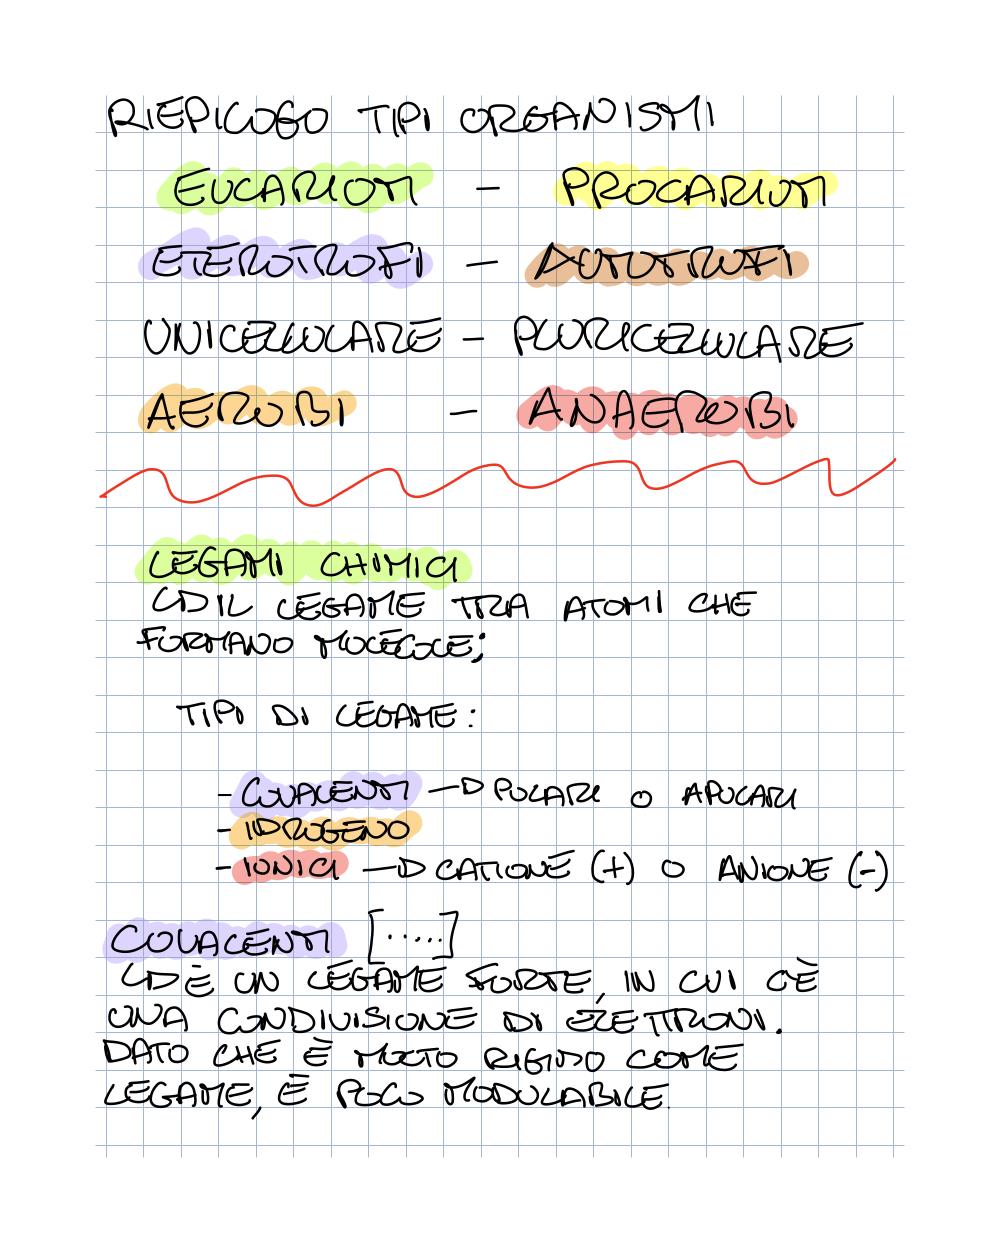 RIEPILOGO TIPI ORGANISMI
EUCARIOTI - PROCARIOTI
ETEROTROFI - AUTOTROFI
UNICELLULARE - PLURICELLULARE
AEROBI - ANAEROBI
LEGAMI CHIMICI
↳ IL LEGAME TRA ATOMI CHE
FORMANO MOLECOLE;
TIPI DI LEGAME:
- COVALENTI → POLARI O APOLARI
- IDROGENO
- IONICI → CATIONE (+) O ANIONE (-)
COVALENTI [.....]
↳ È UN LEGAME FORTE, IN CUI C'È
UNA CONDIVISIONE DI ELETTRONI.
DATO CHE È MOLTO RIGIDO COME
LEGAME, È POCO MODULABILE.